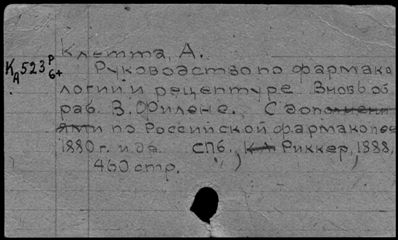 Клетта, А.
КА523 Р 6+
Руководство по фармако
логии и рецептуре. Вновь об
раб. З. Филене. С дополнени
ями по Российской фармакопее
1880 г. изд. СПб., Риккер, 1888,
460 стр.